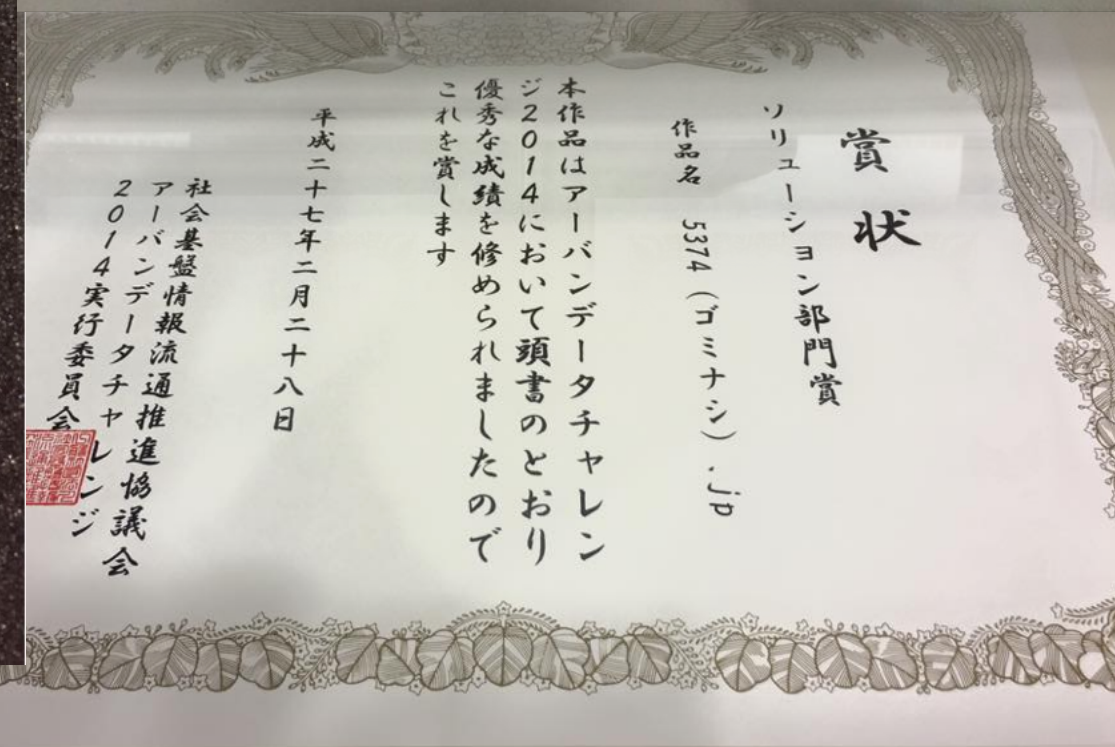 賞状
ソリューション部門賞
作品名 5374(ゴミナシ).jp
本作品はアーバンデータチャレン
ジ2014において頭書のとおり
優秀な成績を修められましたので
これを賞します
平成二十七年二月二十八日
社会基盤情報流通推進協議会
アーバンデータチャレンジ
2014実行委員会